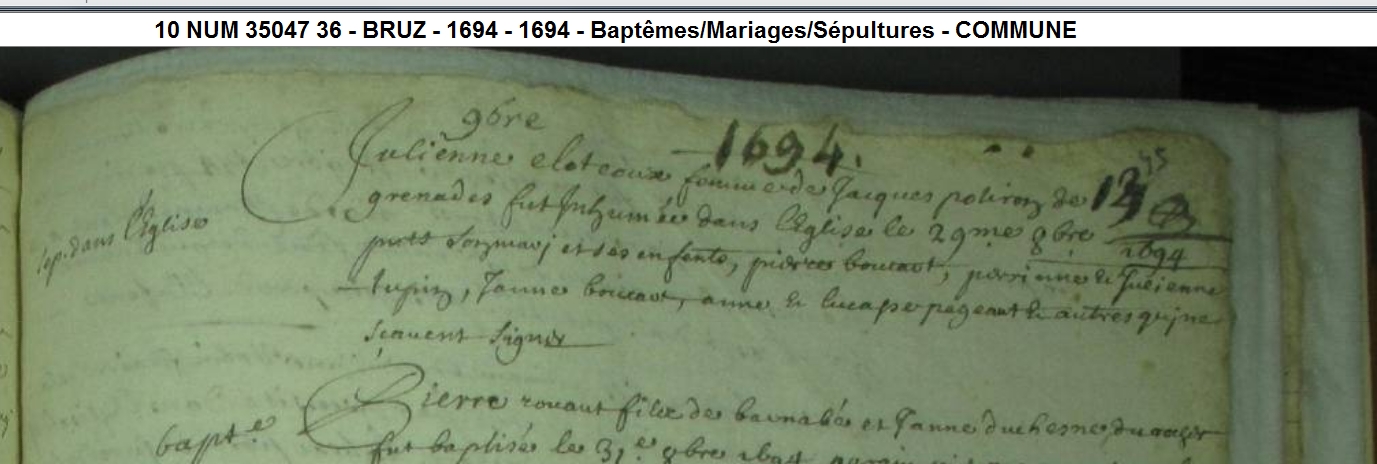 10 NUM 35047 36 - BRUZ - 1694 - 1694 - Baptêmes/Mariages/Sépultures - COMMUNE
9bre
1694.
Julienne eloteaux femme de Jacques poliron de
grenades fut Inhumée dans l'Eglise le 29me 8bre 1694
sep. dans l'Eglise
et ses enfents, pierres boucaut, perrinne & Julienne
tupin, Janne boucaut, anne & lucasse pageaut & autres qui ne
scauent signer
bapt.e
Pierre rouaut fils de barnabée et Janne duchesne
fut baptisé le 31.e 8bre 1694